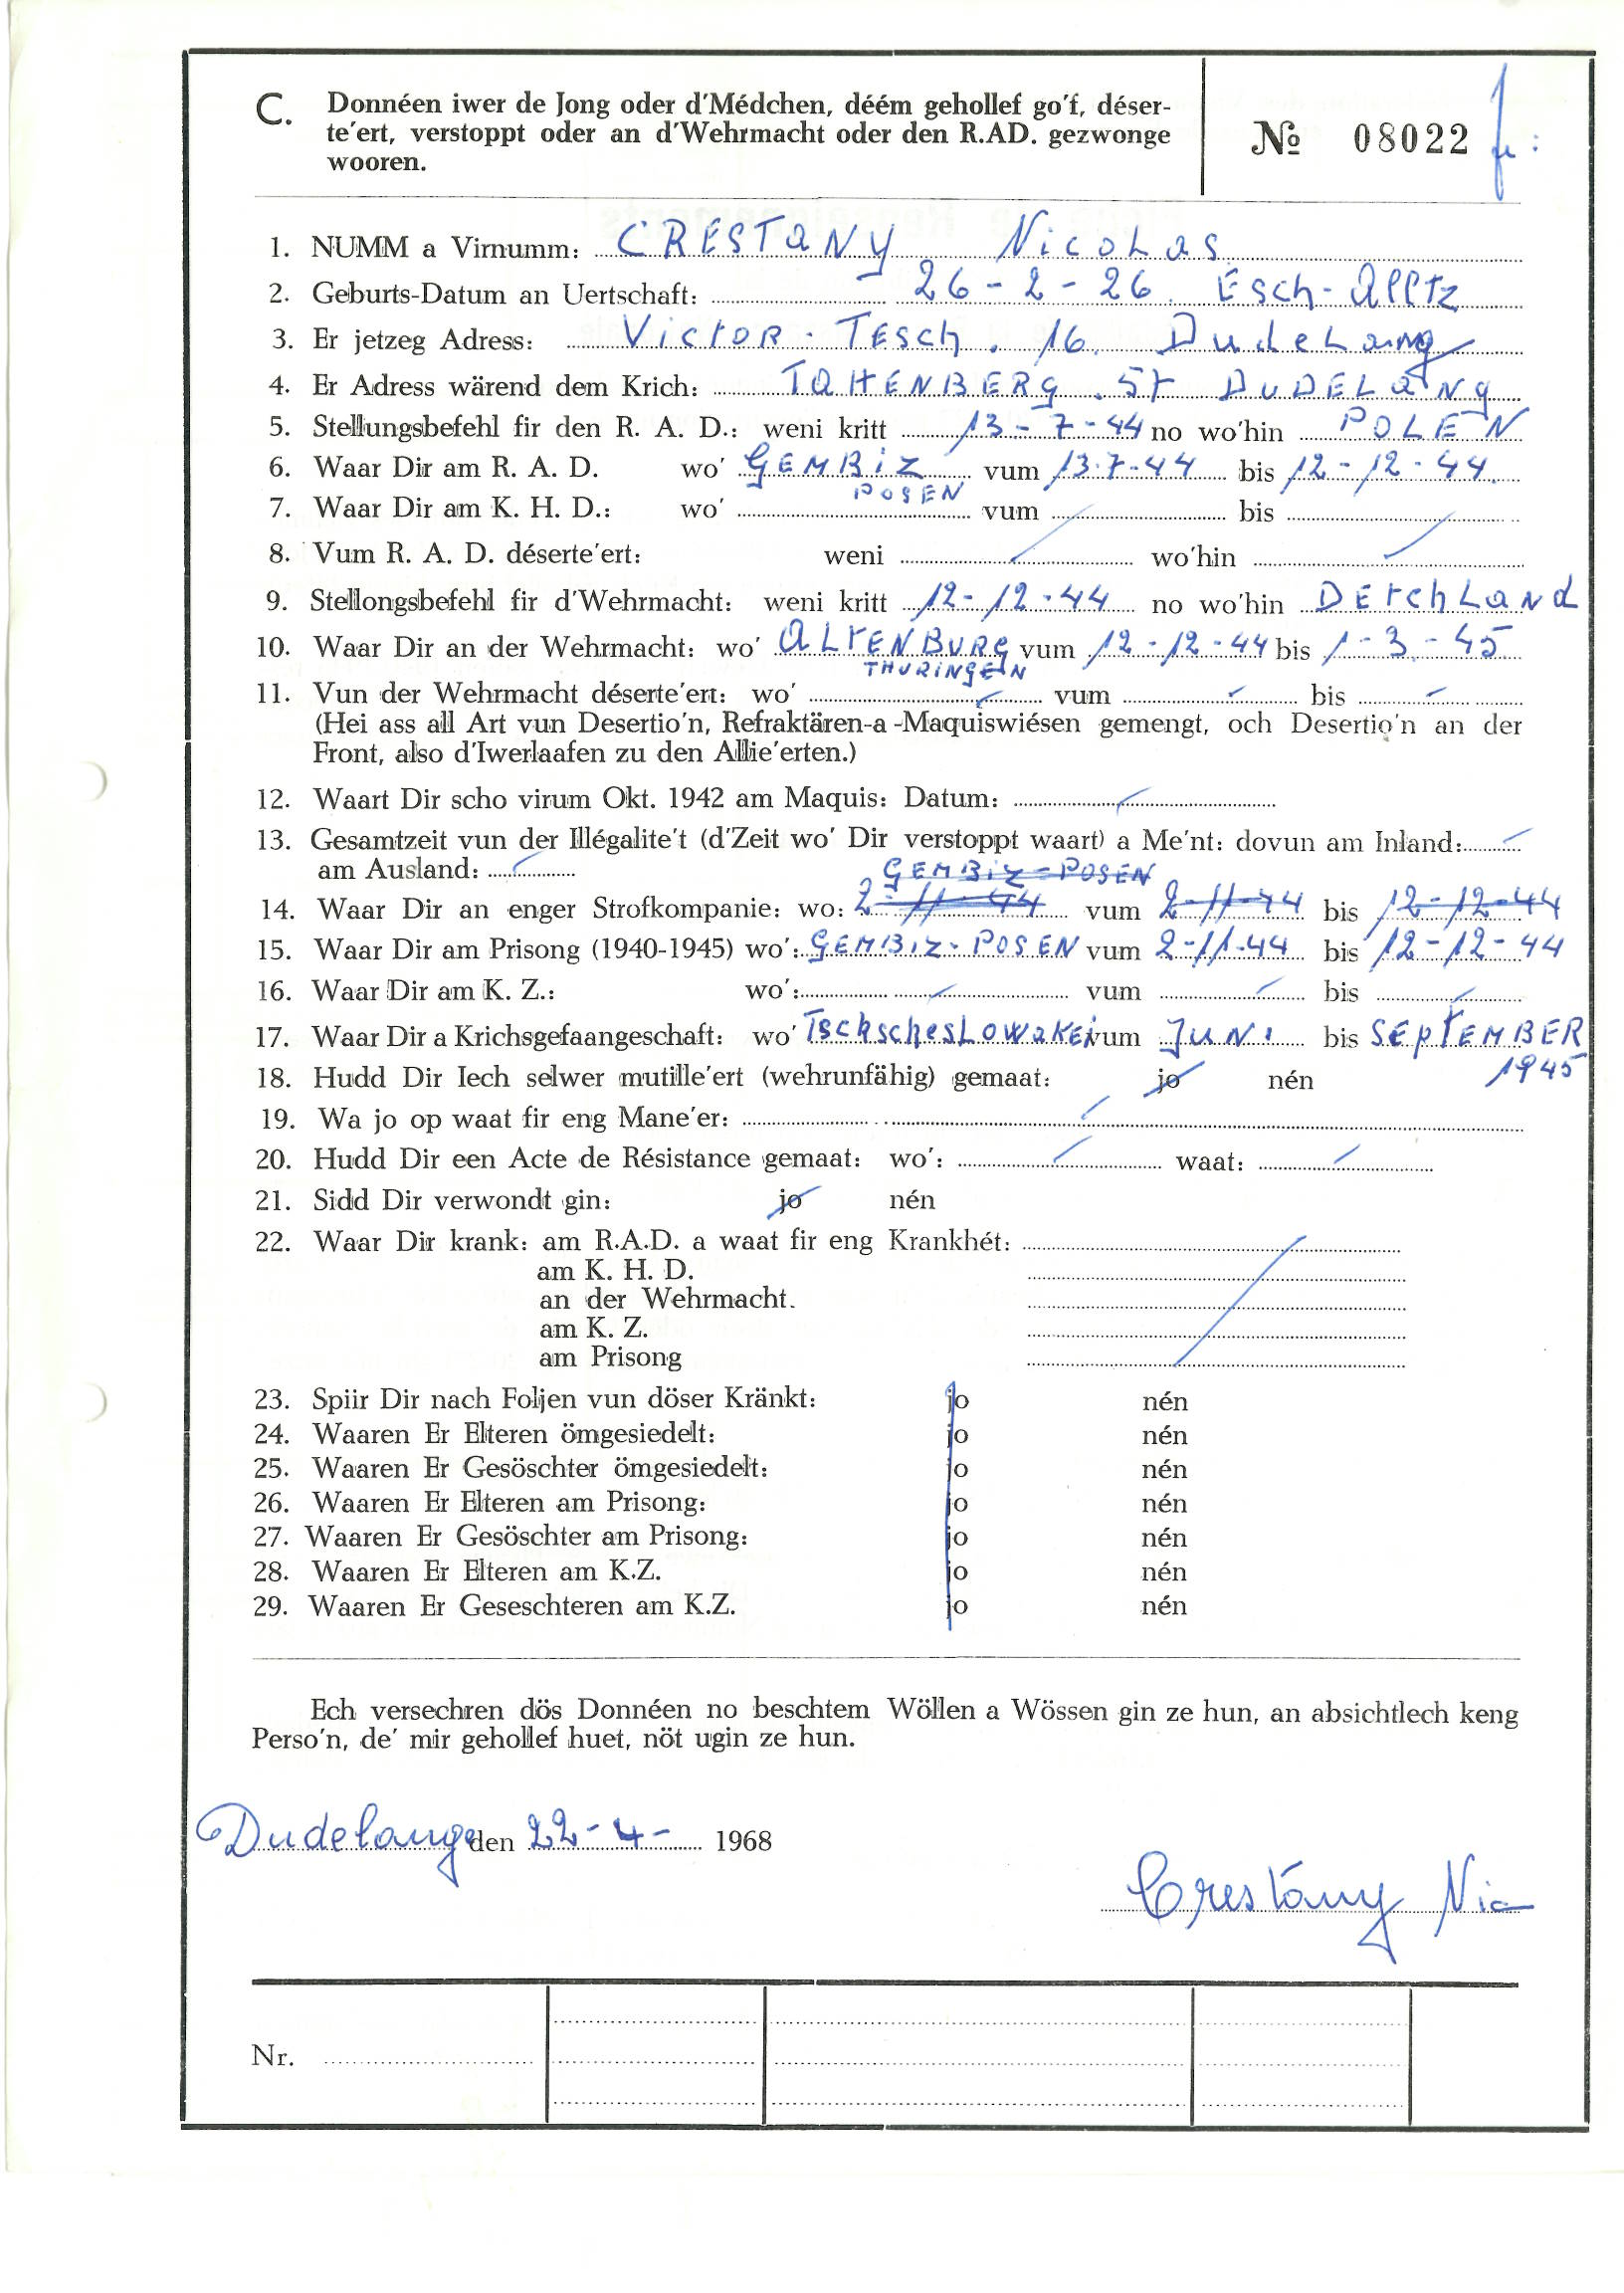 C. Donnéen iwer de Jong oder d'Médchen, déém gehollef go'f, déser-
te'ert, verstoppt oder an d'Wehrmacht oder den R.AD. gezwonge
wooren.
№ 08022
1. NUMM a Virnumm: CRESTANY Nicolas
2. Geburts-Datum an Uertschaft: 26-2-26. Esch-Alltz
3. Er jetzeg Adress: Victor-Tesch. 16. Dudelang
4. Er Adress wärend dem Krich: TAHENBERG. 57 DUDELANG
5. Stellungsbefehl fir den R. A. D.: weni kritt 13-7-44 no wo'hin POLEN
6. Waar Dir am R. A. D. wo' GEMBIZ vum 13.7-44 bis 12-12-44.
POSEN
7. Waar Dir am K. H. D.: wo' vum bis
8. Vum R. A. D. déserte'ert: weni wo'hin
9. Stellongsbefehl fir d'Wehrmacht: weni kritt 12-12-44 no wo'hin DETCHLAND
10. Waar Dir an der Wehrmacht: wo' ALTENBURG vum 12-12-44 bis 1-3-45
THURINGEN
11. Vun der Wehrmacht déserte'ert: wo' vum bis
(Hei ass all Art vun Desertio'n, Refraktären-a-Maquiswiésen gemengt, och Desertio'n an der
Front, also d'Iwerlaafen zu den Allie'erten.)
12. Waart Dir scho virum Okt. 1942 am Maquis: Datum:
13. Gesamtzeit vun der Illégalite't (d'Zeit wo' Dir verstoppt waart) a Me'nt: dovun am Inland:
am Ausland:
GEMBIZ-POSEN
14. Waar Dir an enger Strofkompanie: wo: 2-11-44 vum 2-11-44 bis 12-12-44
15. Waar Dir am Prisong (1940-1945) wo': GEMBIZ-POSEN vum 2-11-44 bis 12-12-44
16. Waar Dir am K. Z.: wo': vum bis
17. Waar Dir a Krichsgefaangeschaft: wo' TschschesLowaKei vum Juni bis SEPTEMBER
1945
18. Hudd Dir Iech selwer mutille'ert (wehrunfähig) gemaat: jo nén
19. Wa jo op waat fir eng Mane'er:
20. Hudd Dir een Acte de Résistance gemaat: wo': waat:
21. Sidd Dir verwondt gin: jo nén
22. Waar Dir krank: am R.A.D. a waat fir eng Krankhét:
am K. H. D.
an der Wehrmacht.
am K. Z.
am Prisong
23. Spiir Dir nach Foljen vun döser Kränkt: jo nén
24. Waaren Er Elteren ömgesiedelt: jo nén
25. Waaren Er Gesöschter ömgesiedelt: jo nén
26. Waaren Er Elteren am Prisong: jo nén
27. Waaren Er Gesöschter am Prisong: jo nén
28. Waaren Er Elteren am K.Z. jo nén
29. Waaren Er Geseschteren am K.Z. jo nén
Ech versechren dös Donnéen no beschtem Wöllen a Wössen gin ze hun, an absichtlech keng
Perso'n, de' mir gehollef huet, nöt ugin ze hun.
Dudelange den 22-4- 1968
Crestany Nic
Nr.